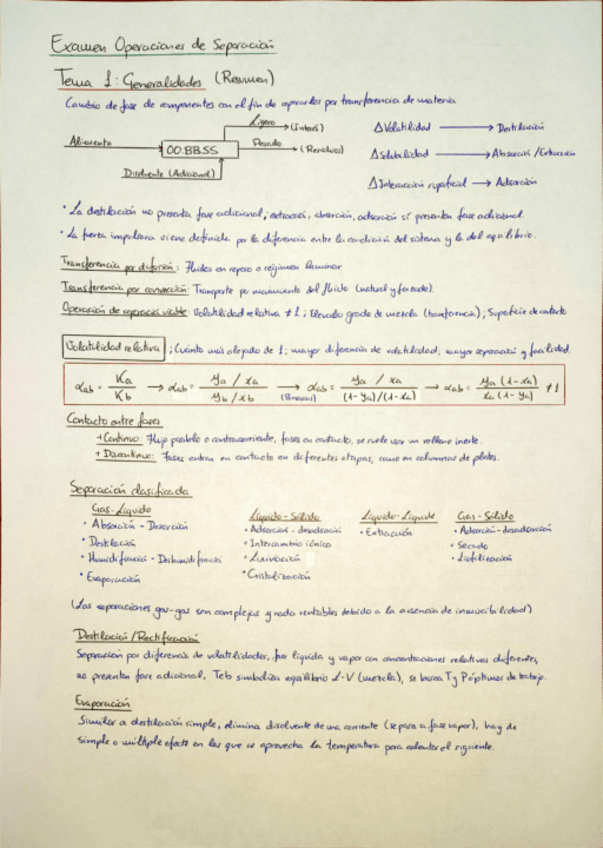 Examen Operaciones de Separación
Tema 1: Generalidades (Resumen)
Cambio de fase de componentes con el fin de separarlos por transferencia de materia
Alimento → OO.BB.SS
Ligero → (Interés)
Pesado → (Residuos)
Disolvente (Adicional)
Δ Volatilidad → Destilación
Δ Solubilidad → Absorción / Extracción
Δ Interacción superficial → Adsorción
• La destilación no presenta fase adicional; extracción, absorción, adsorción sí presentan fase adicional.
• La fuerza impulsora viene definida por la diferencia entre la condición del sistema y la del equilibrio.
Transferencia por difusión: Fluidos en reposo o régimen laminar
Transferencia por convección: Transporte por movimiento del fluido (natural y forzado).
Operación de separación viable: Volatilidad relativa ≠ 1; Elevado grado de mezcla (transferencia); Superficie de contacto
Volatilidad relativa; Cuánto más alejado de 1; mayor diferencia de volatilidad, mayor separación y facilidad.
αab = Ka / Kb → αab = (ya / xa) / (yb / xb) → (Binarias) αab = (ya / xa) / ((1-ya)/(1-xa)) → αab = ya (1-xa) / xa (1-ya) ≠ 1
Contacto entre fases
+ Continuo: Flujo paralelo o contracorriente, fases en contacto, se suele usar un relleno inerte.
+ Discontinuo: Fases entran en contacto en diferentes etapas, como en columnas de platos.
Separación clasificada
Gas-Líquido
• Absorción - Desorción
• Destilación
• Humidificación - Deshumidificación
• Evaporación
Líquido-Sólido
• Adsorción - desadsorción
• Intercambio iónico
• Lixiviación
• Cristalización
Líquido-Líquido
• Extracción
Gas-Sólido
• Adsorción - desadsorción
• Secado
• Liofilización
(Las separaciones gas-gas son complejas y nada rentables debido a la ausencia de inmiscibilidad)
Destilación/Rectificación
Separación por diferencia de volatilidades, fase líquida y vapor con concentraciones relativas diferentes,
no presentan fase adicional, Teb simboliza equilibrio L-V (mezcla), se busca T y P óptimas de trabajo.
Evaporación
Similar a destilación simple, elimina disolvente de una corriente (se pasa a fase vapor), hay de
simple o múltiple efecto en las que se aprovecha la temperatura para calentar el siguiente.